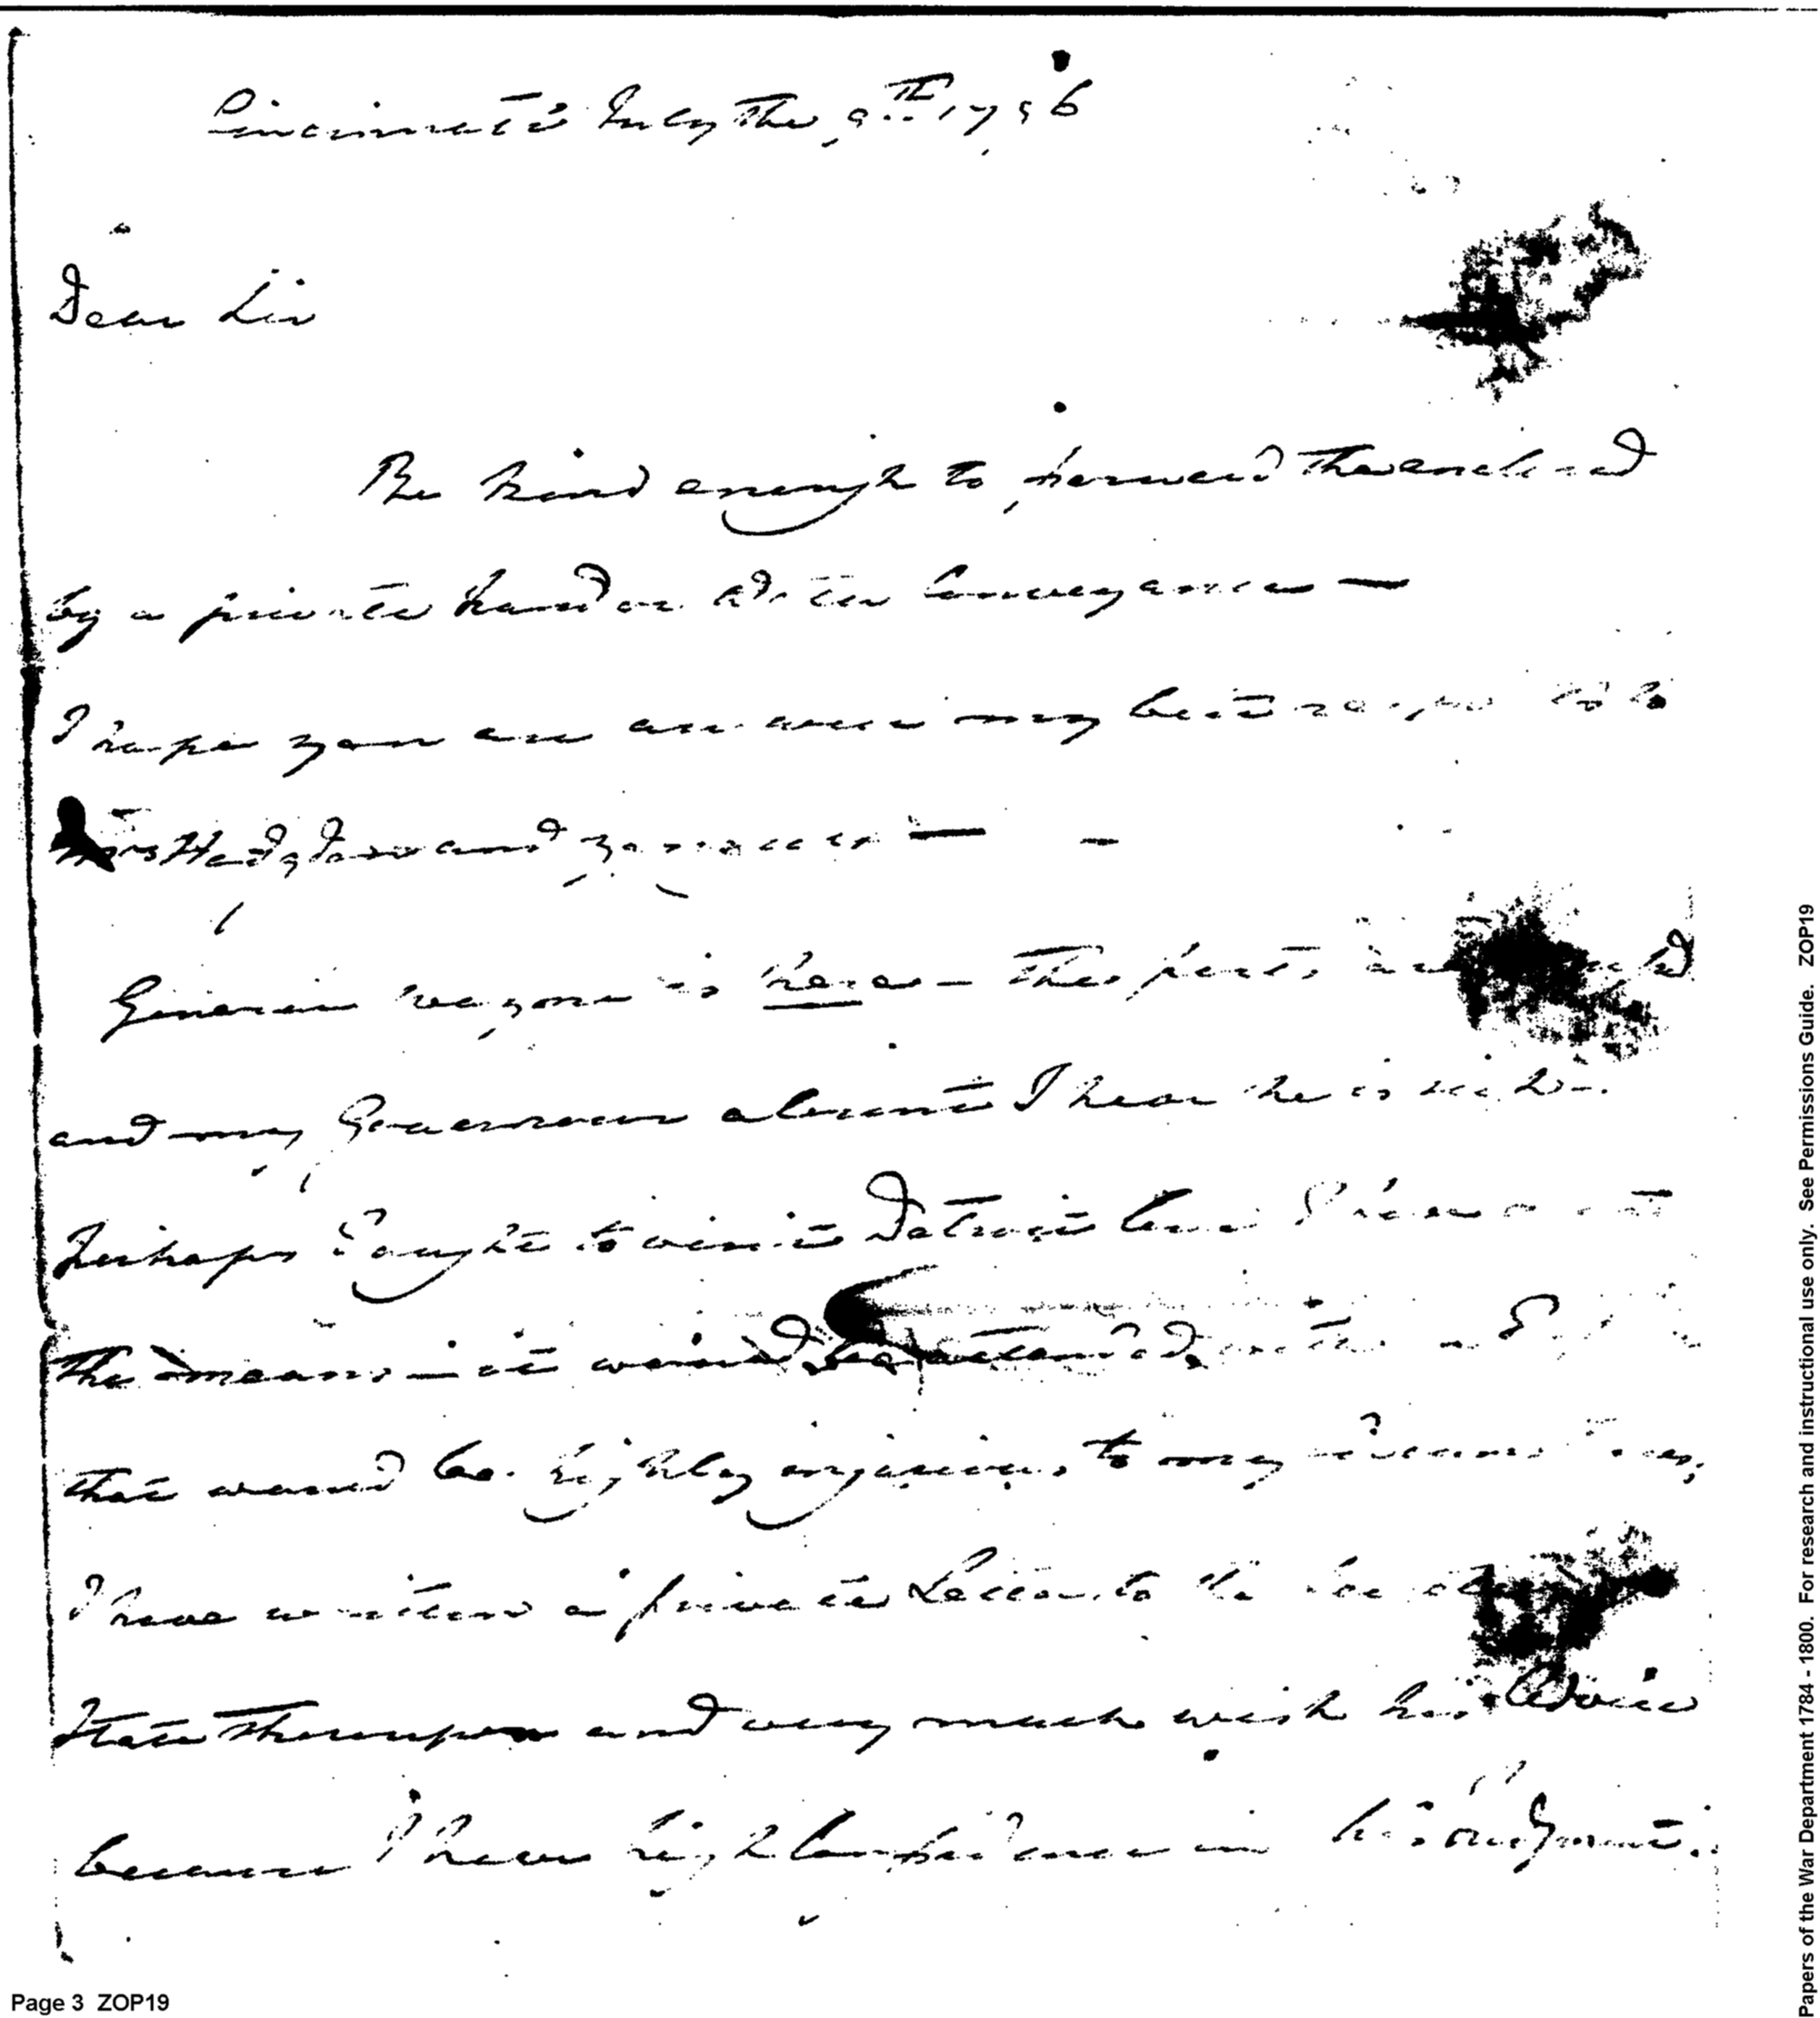 Cincinnati July the 9th 1796
Dear Sir
Be kind enough to forward the enclosed
by a private hand or Conveyance —
I hope you are my best respects to
Mrs Hodgdon and —
General Wayne is here — the posts are
and my Governour absent I hear he is
Perhaps I ought to visit Detroit but I have not
the means — it would be attended with a
that would be highly injurious to my circumstances,
I have written a private Letter to the
State thereupon and very much wish his Advice
because I have high Confidence in his Judgment.
Page 3 ZOP19
Papers of the War Department 1784 - 1800. For research and instructional use only. See Permissions Guide. ZOP19